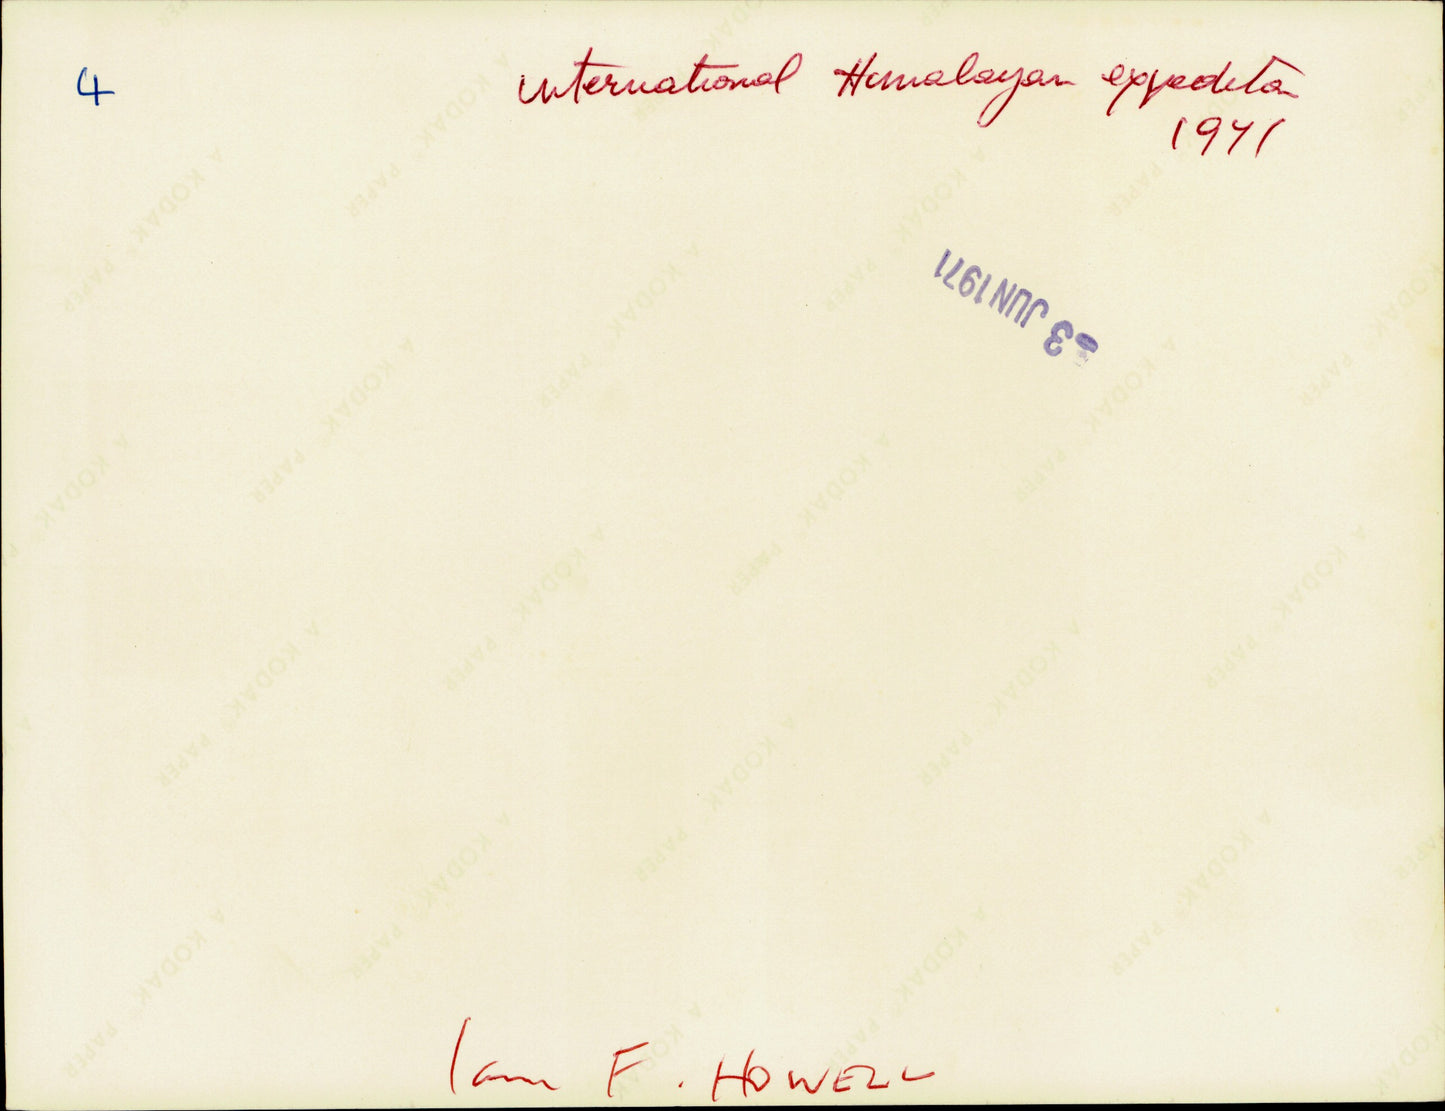 4
international Himalayan expedition
1971
-3 JUN 1971
A KODAK PAPER
Ian F. HOWELL